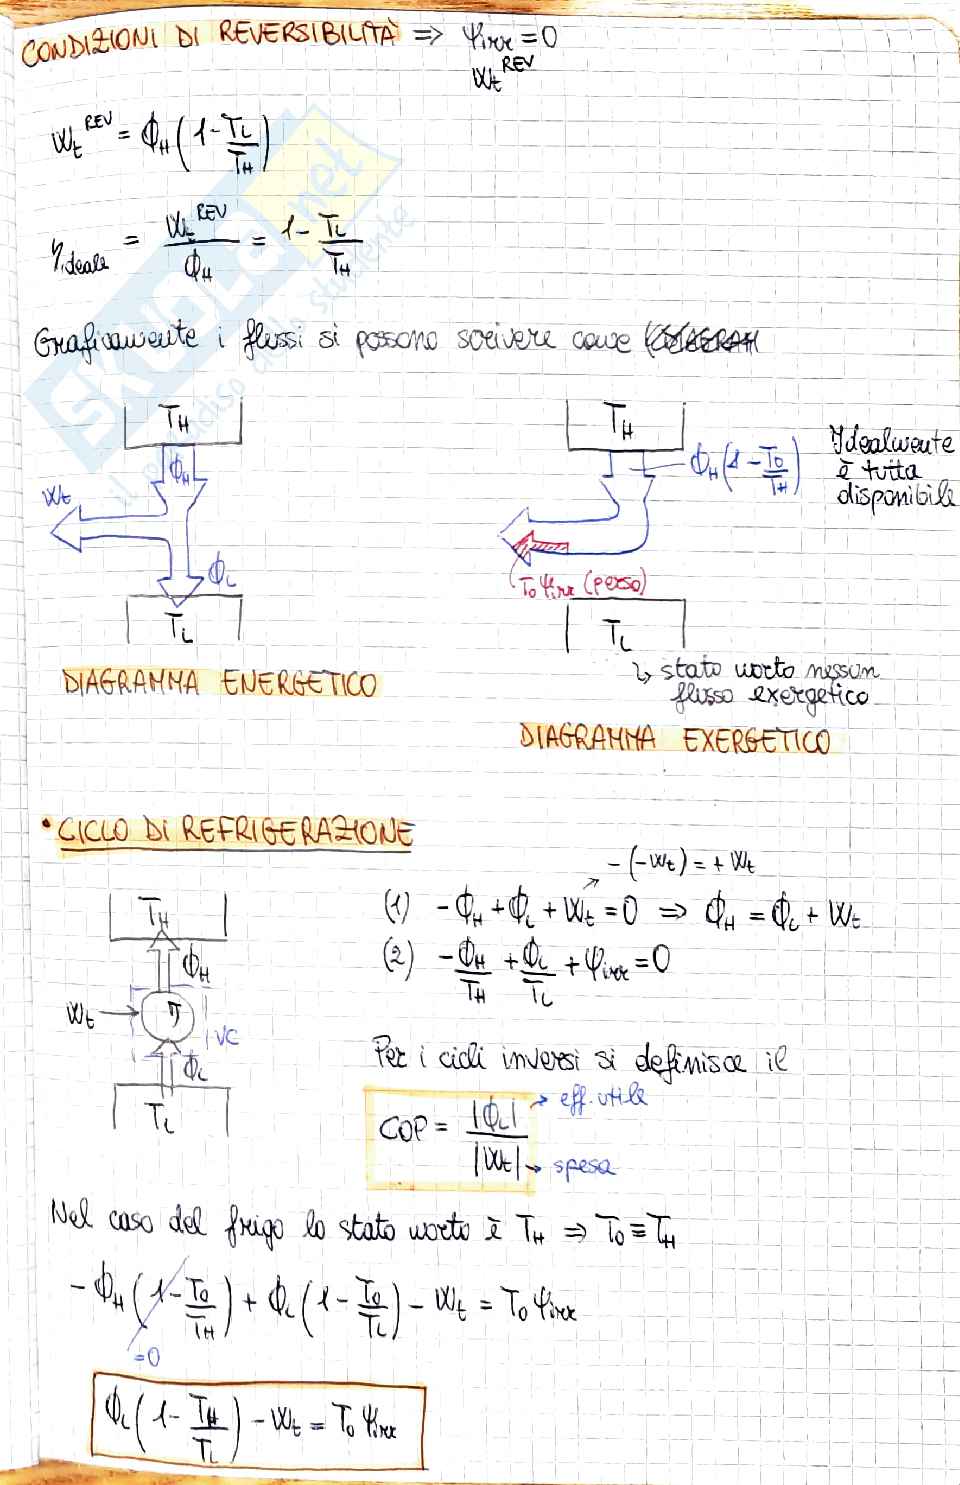 CONDIZIONI DI REVERSIBILITÀ ⇒ φirr = 0
Wt^REV
Wt^REV = ΦH (1 - TL/TH)
ηideale = Wt^REV / ΦH = 1 - TL/TH
Graficamente i flussi si possono scrivere come
TH
ΦH
Wt
ΦL
TL
DIAGRAMMA ENERGETICO
TH
ΦH (1 - T0/TH)
Idealmente
è tutta
disponibile
T0 φirr (perso)
TL
↳ stato morto nessun
flusso exergetico
DIAGRAMMA EXERGETICO
• CICLO DI REFRIGERAZIONE
TH
ΦH
Wt
η
VC
ΦL
TL
-(-Wt) = + Wt
(1) -ΦH + ΦL + Wt = 0 ⇒ ΦH = ΦL + Wt
(2) -ΦH/TH + ΦL/TL + φirr = 0
Per i cicli inversi si definisce il
COP = |ΦL| / |Wt|
→ eff. utile
→ spesa
Nel caso del frigo lo stato morto è TH ⇒ T0 ≡ TH
-ΦH (1 - T0/TH) + ΦL (1 - T0/TL) - Wt = T0 φirr
= 0
ΦL (1 - TH/TL) - Wt = T0 φirr
SKUOLA.net
il paradiso dello studente